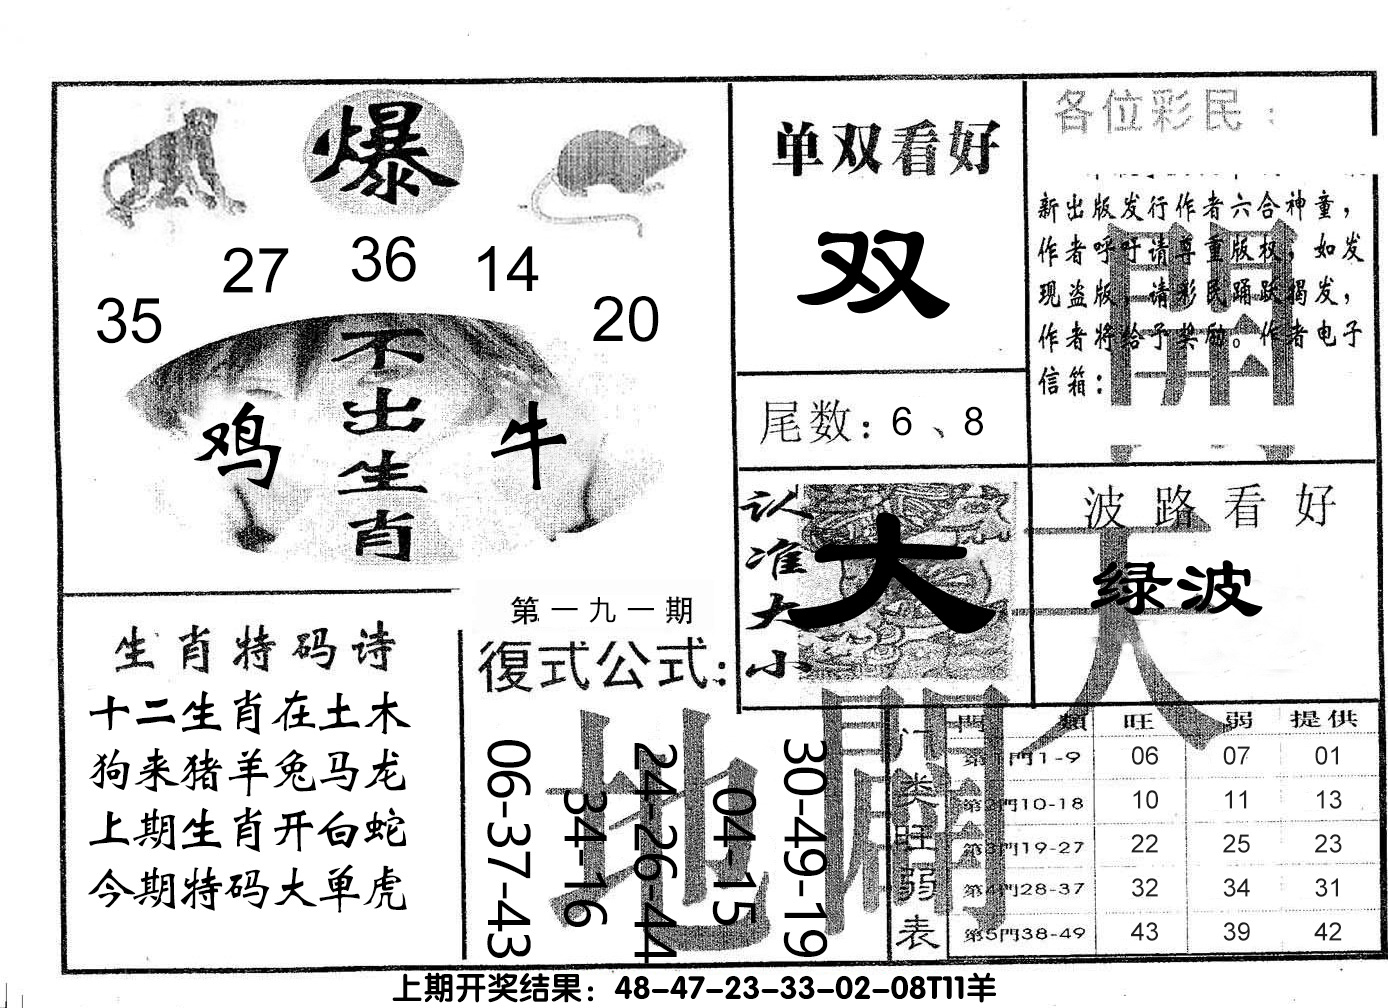 爆
27 36 14
35 20
不出生肖
鸡 牛
单双看好
双
尾数：6、8
各位彩民：
新出版发行作者六合神童，
作者呼吁请尊重版权，如发
现盗版，请彩民踊跃揭发，
作者将给予奖励。作者电子
信箱：
認准大小
大
波路看好
绿波
生肖特码诗
十二生肖在土木
狗来猪羊兔马龙
上期生肖开白蛇
今期特码大单虎
第一九一期
復式公式：
06-37-43
34-16
24-26-44
04-15
30-49-19
天
地
開
闢
门类旺弱表
門類 旺 弱 提供
第1門1-9 06 07 01
第2門10-18 10 11 13
第3門19-27 22 25 23
第4門28-37 32 34 31
第5門38-49 43 39 42
上期开奖结果：48-47-23-33-02-08T11羊